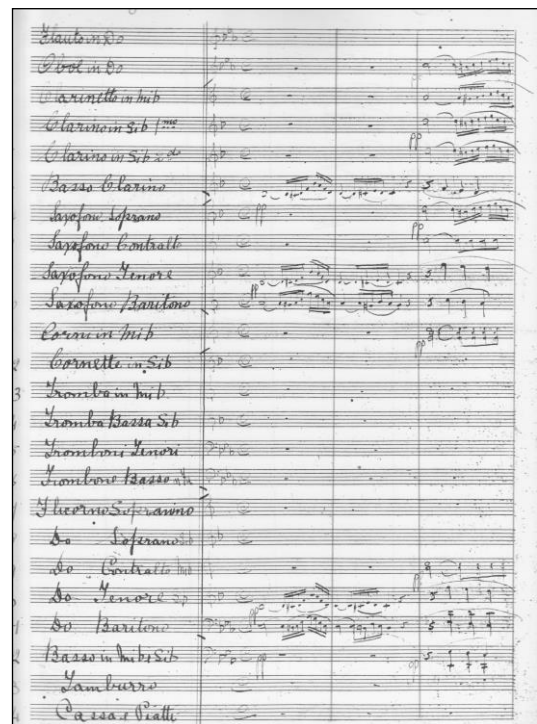 Flauto in Do
Oboe in Do
Clarinetto in mib
Clarino in Sib 1mo
Clarino in Sib 2do
Basso Clarino
Saxofono Soprano
Saxofono Contralto
Saxofono Tenore
Saxofono Baritono
Corni in Mib
Cornette in Sib
Tromba in Mib
Tromba Bassa Sib
Tromboni Tenori
Trombone Basso
Flicorno Sopranino
Do Soprano
Do Contralto
Do Tenore
Do Baritono
Basso in Mib e Sib
Tamburro
Cassa e Piatti
pp
pp
pp
pp
pp
pp
pp
pp
pp